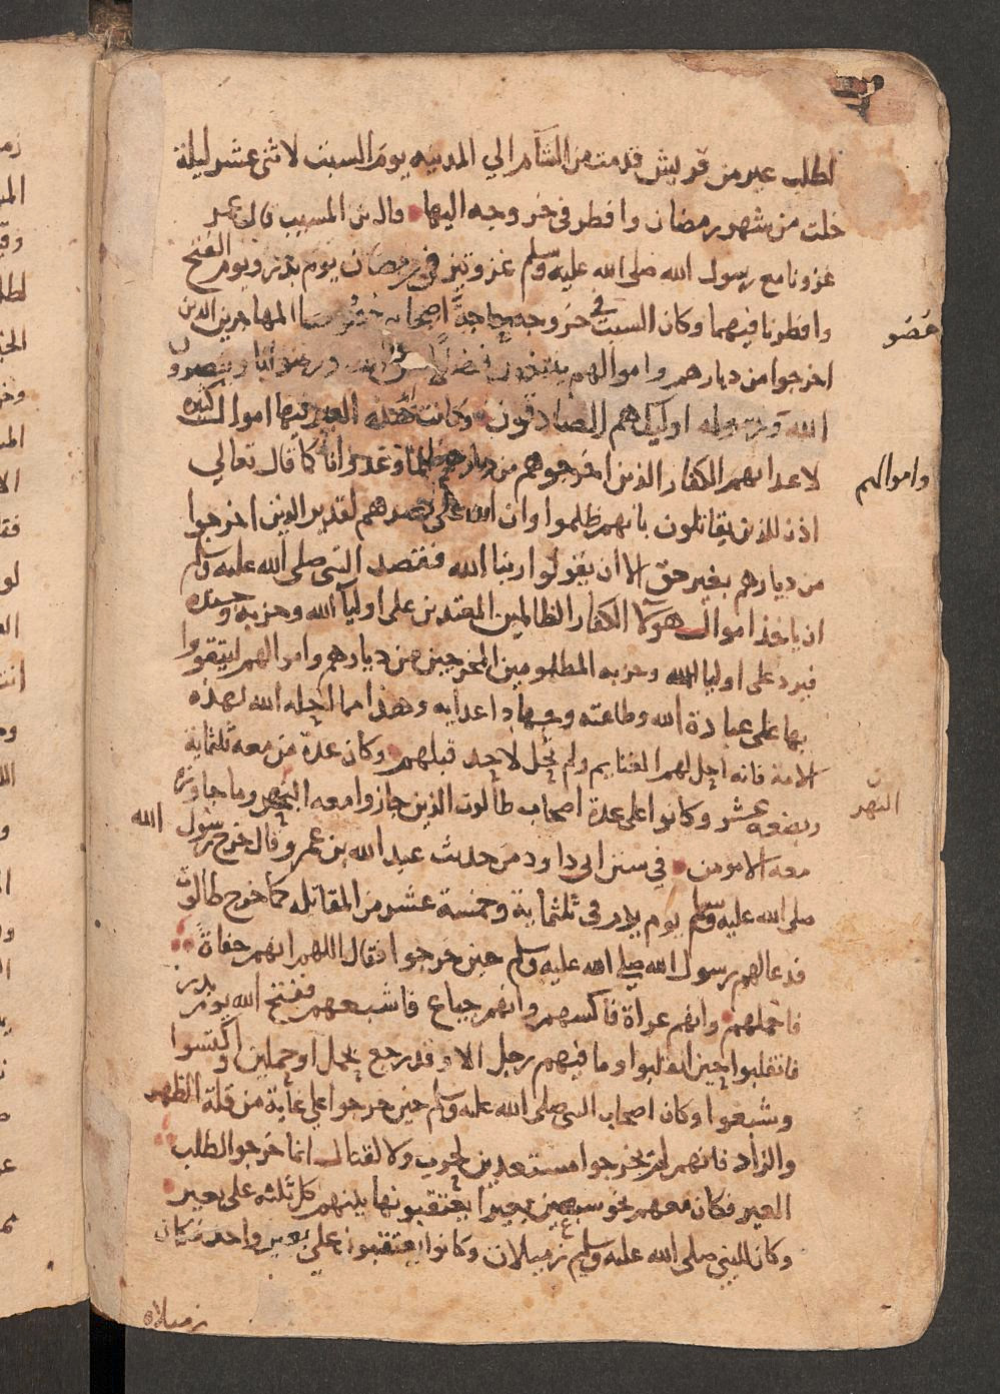 لطلب عير من قريش قدمت من الشام الي المدينه يوم السبت لاثنى عشر ليلة
خلت من شهر رمضان وافطر فى خروجه اليها قال بن المسيب قال عمر
غزونا مع رسول الله صلى الله عليه وسلم غزوتين فى رمضان يوم بدر ويوم الفتح
وافطرنا فيهما وكان السبب في خروجه حاجة اصحابه خصوصا المهاجرين الذين
خصو
اخرجوا من ديارهم واموالهم يبتغون فضلا من الله ورضوانا وينصرون
الله ورسوله اوليك هم الصادقون وكانت هذه العير فيها اموال كثيره
لاعدايهم الكفار الذين اخرجوهم من ديارهم ظلما وعدوانا كما قال تعالي
واموالهم
اذن للذين يقاتلون بانهم ظلموا وان الله على نصرهم لقدير الذين اخرجوا
من ديارهم بغير حق الا ان يقولوا ربنا الله فقصد النبى صلى الله عليه وسلم
ان ياخذ اموال هولآ الكفار الظالمين المعتدين على اوليآ الله وحزبه وجنده
فيردعلى اوليا الله وحزبه المظلومين المخرجين من ديارهم واموالهم ليتقووا
بها على عبادة الله وطاعته وجهاد اعدايه وهذا مما احله الله لهذه
الامة فانه احل لهم الغنايم ولم تحل لاحد قبلهم وكان عدة من معه ثلثماية
وبضعه عشر وكانوا على عدة اصحاب طالوت الذين جازوا معه النهر وما جاوزه
النهر
معه الا مومن في سنن ابى داود من حديث عبد الله بن عمرو قال خرج رسول الله
صلى الله عليه وسلم يوم بدر فى ثلثماية وخمسة عشر من المقاتله كما خرج طالوت
فدعا لهم رسول الله صلى الله عليه وسلم حين خرجوا فقال اللهم انهم حفاة
فاحملهم وانهم عراة فاكسهم وانهم جياع فاشبعهم ففتح الله يوم بدر
فانقلبوا حين انقلبوا وما فيهم رجل الا وقد رجع بحمل او حملين واكتسوا
وشبعوا وكان اصحاب النبى صلى الله عليه وسلم حين خرجوا على غاية من قلة الظهر
والزاد فانهم لم يخرجوا مستعدين لحرب ولا لقتال انما خرجوا لطلب
العير فكان معهم نحو سبعين بعيرا يعتقبونها بينهم كل ثلثه على بعير
وكان للنبي صلى الله عليه وسلم زميلان وكانوا يعتقبون على بعير واحد فكان
زميلاه